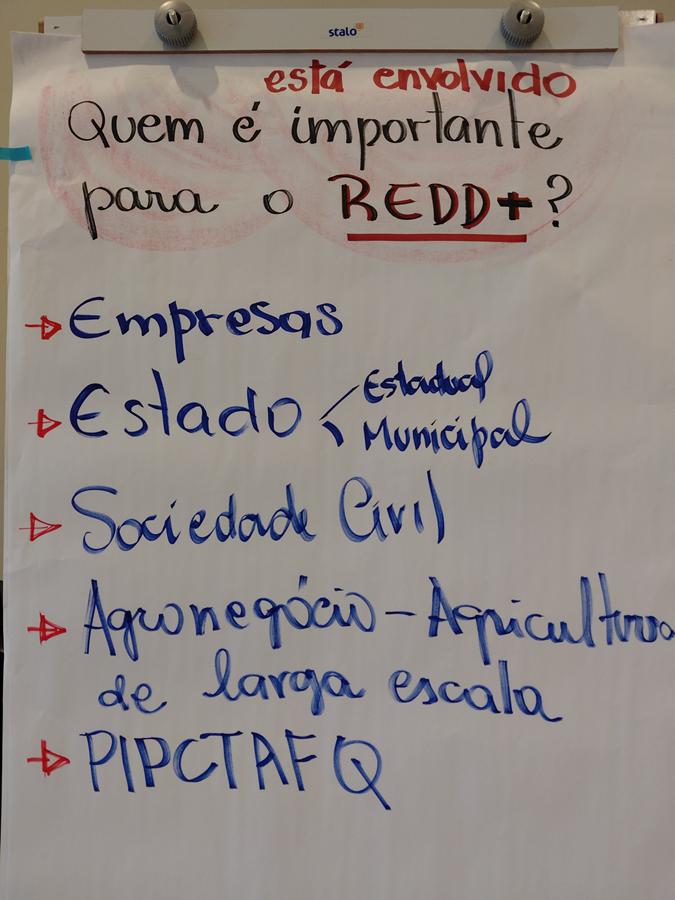 stalo
está envolvido
Quem é importante
para o REDD+?
Empresas
Estado
Estadual
Municipal
Sociedade Civil
Agronegócio - Agricultura
de larga escala
PIPCTAFQ